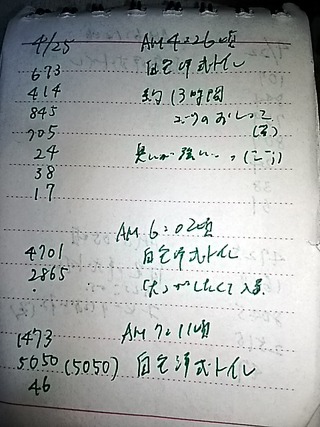 4/25 AM 4:26頃
673 自宅洋式トイレ
414 約13時間
845 のおしっこ
705
24 臭いが強い
38
1.7
AM 6:02頃
4701 自宅洋式トイレ
2865 「大」がしたくて入
AM 7:11頃
1473
5050 (5050) 自宅洋式トイレ
46